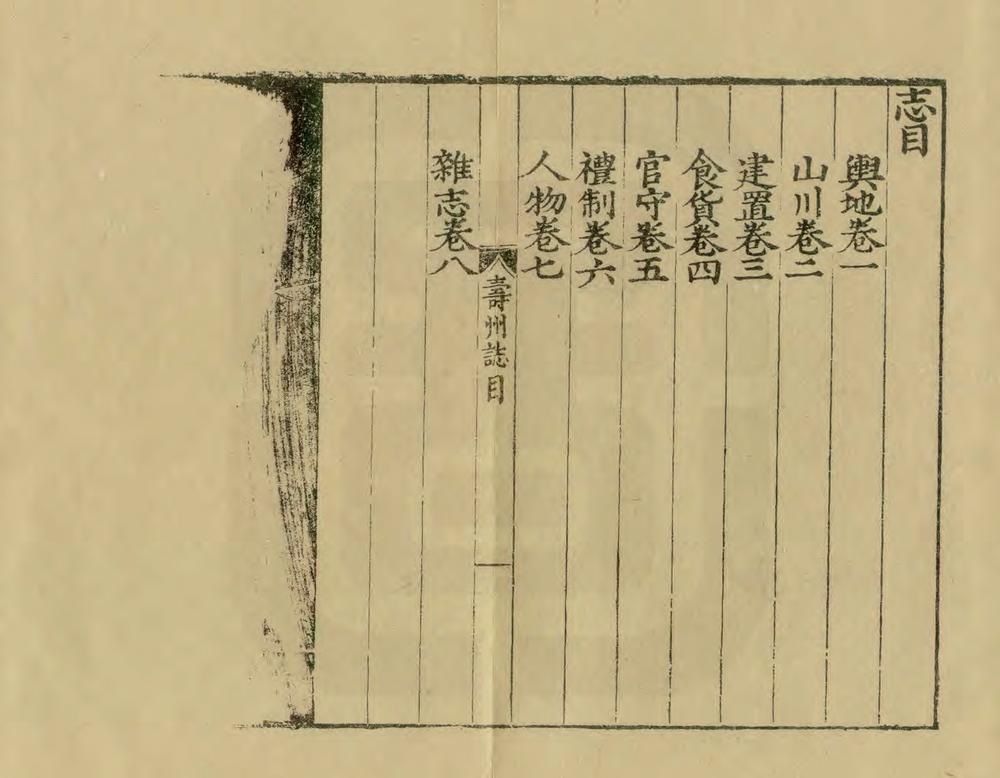 志目
輿地卷一
山川卷二
建置卷三
食貨卷四
官守卷五
禮制卷六
人物卷七
壽州誌目
雜志卷八